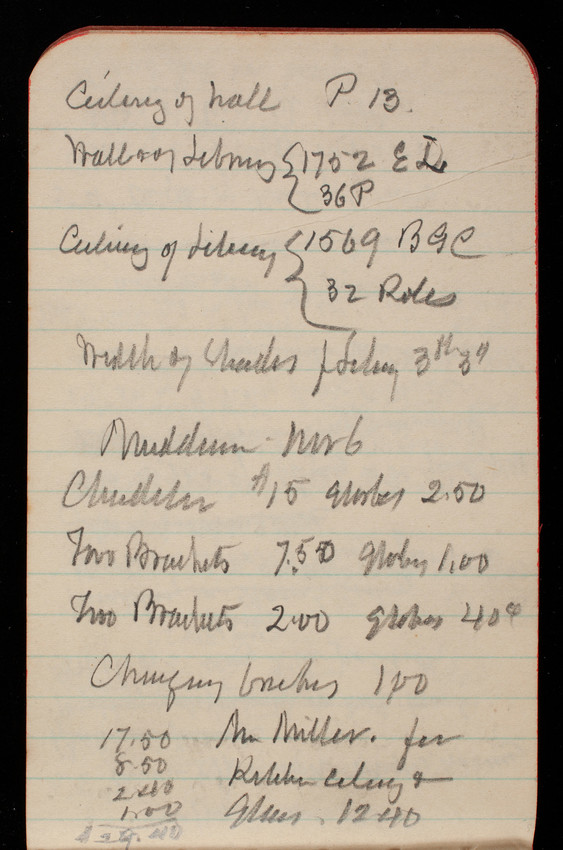 Ceiling of hall P. 13.
Walls of Library { 1752 E D.
36 P
Ceiling of Library { 1569 B G C
32 Roles
Width of Shades f Library 3 ft 3"
No 6
Chandelier $15 globes 2.50
Two Brackets 7.50 globes 1.00
Two Brackets 2.00 globes 40¢
Changing brackets 1.00
17.50 Mr Miller. for
8.50 Kitchen ceiling &
2.40
1.00 Glass. 12 40
$ 29.40